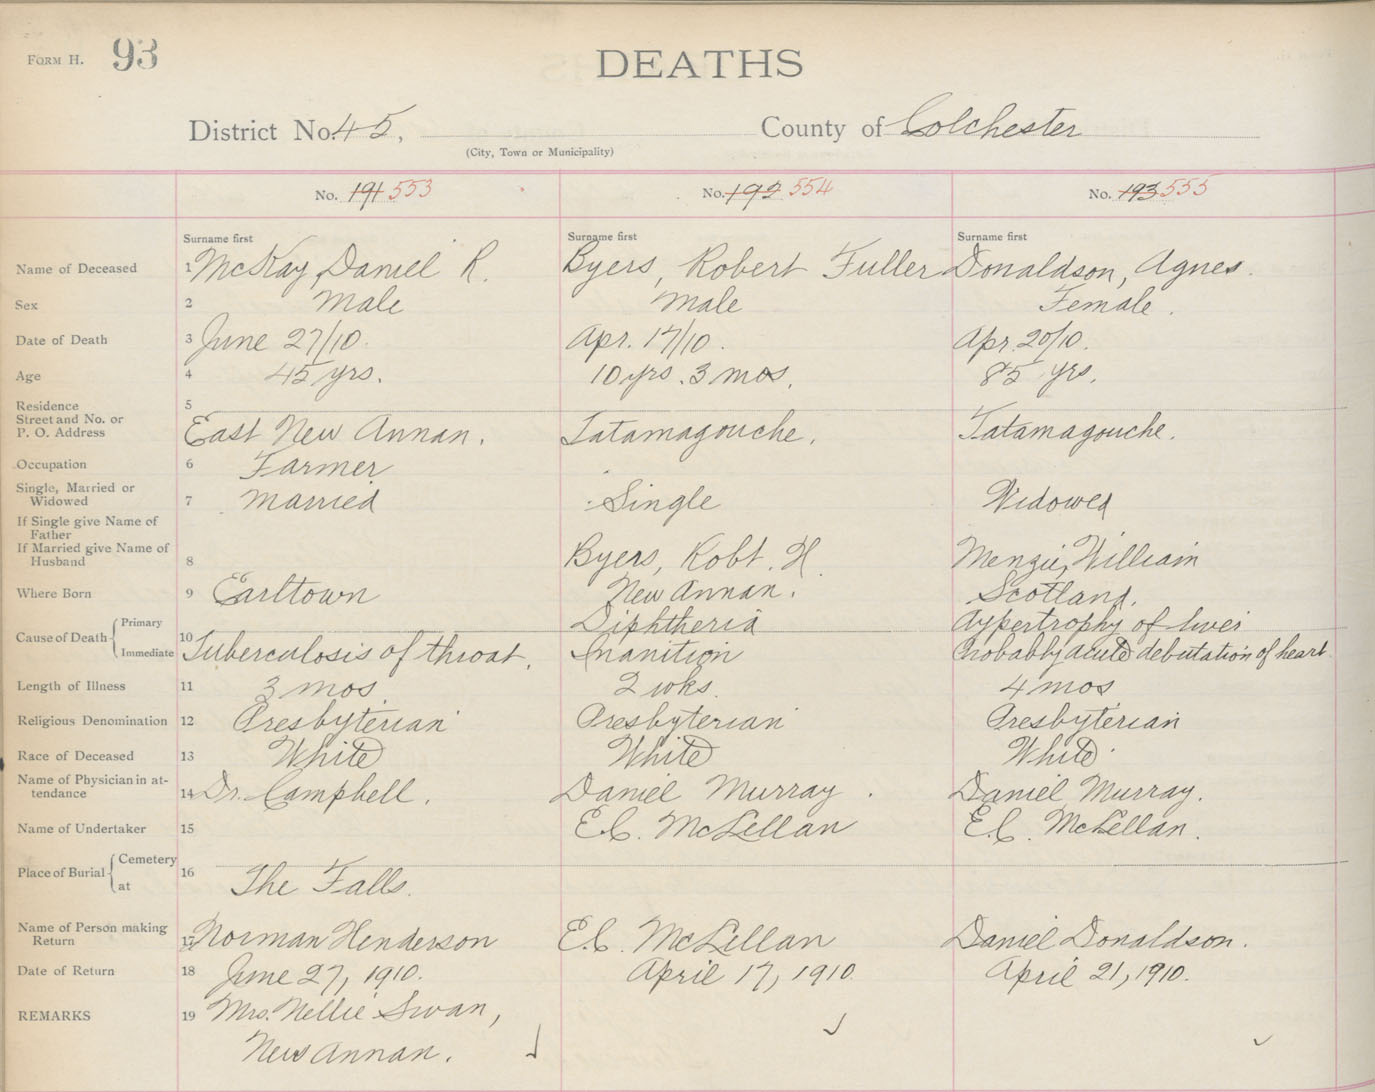 FORM H. 93
DEATHS
District No. 45, County of Colchester
(City, Town or Municipality)
No. 191 553 No. 192 554 No. 193 555
Surname first Surname first Surname first
Name of Deceased 1 McKay, Daniel R. Byers, Robert Fuller Donaldson, Agnes.
Sex 2 Male Male Female.
Date of Death 3 June 27/10. Apr. 17/10. Apr. 20/10.
Age 4 45 yrs. 10 yrs. 3 mos. 85 yrs.
Residence 5
Street and No. or
P. O. Address East New Annan. Tatamagouche. Tatamagouche.
Occupation 6 Farmer
Single, Married or
Widowed 7 Married Single Widowed
If Single give Name of
Father
If Married give Name of
Husband 8 Byers, Robt. H. Menzie, William
Where Born 9 Earltown New Annan. Scotland.
Cause of Death Primary Diphtheria Hypertrophy of liver
10
Immediate Tuberculosis of throat. Inanition Probably acute of heart
Length of Illness 11 3 mos. 2 wks. 4 mos
Religious Denomination 12 Presbyterian Presbyterian Presbyterian
Race of Deceased 13 White White White
Name of Physician in at-
tendance 14 Dr. Campbell. Daniel Murray. Daniel Murray.
Name of Undertaker 15 E.C. McLellan E.C. McLellan.
Place of Burial Cemetery 16
at The Falls.
Name of Person making
Return 17 Norman Henderson E.C. McLellan Daniel Donaldson.
Date of Return 18 June 27, 1910. April 17, 1910. April 21, 1910.
REMARKS 19 Mrs. Nellie Swan,
New Annan.